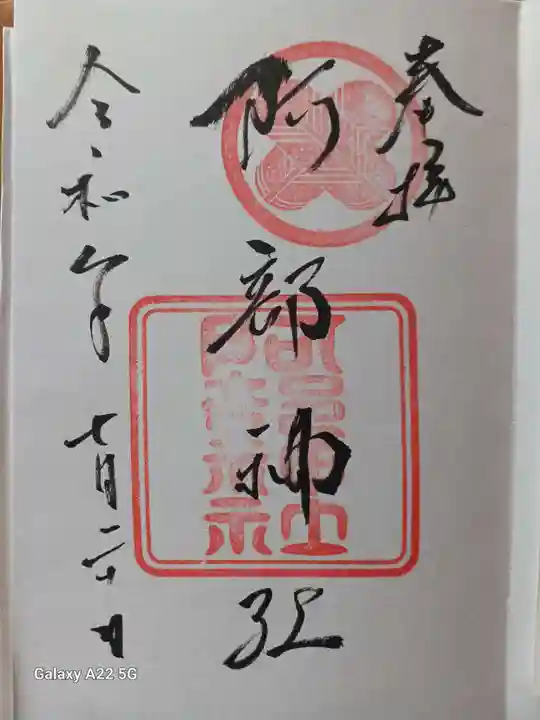 奉拝
阿部神社
令和 年 七月二十 日
Galaxy A22 5G